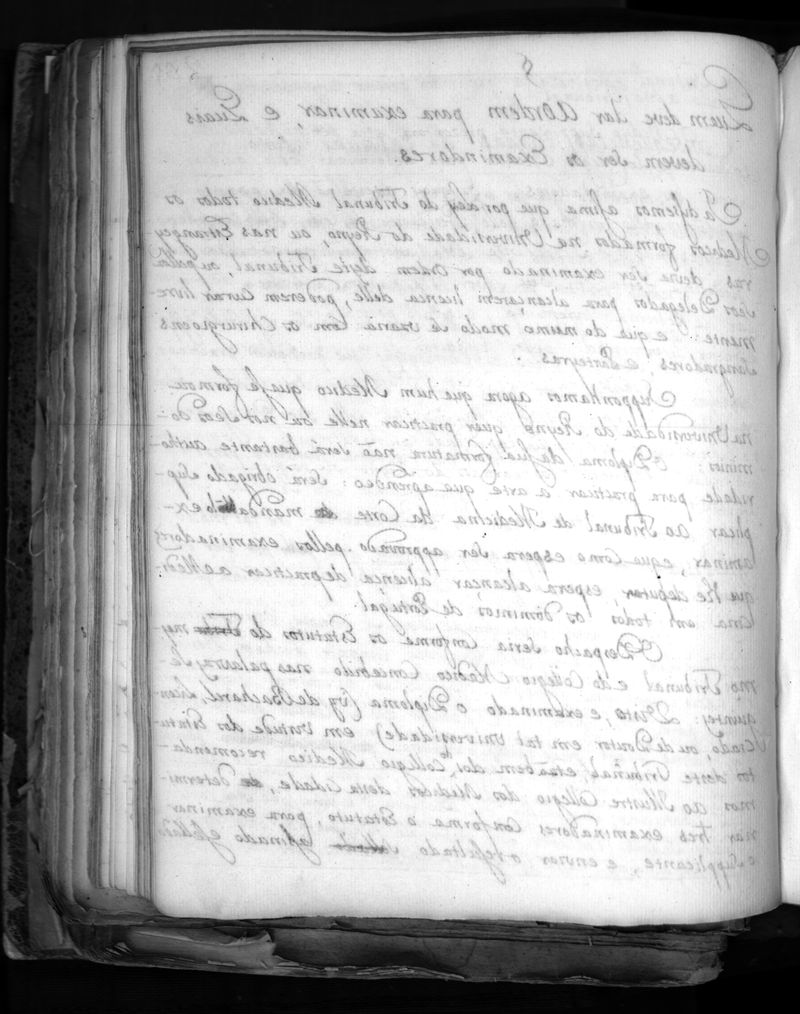 §
Quem deve dar a Ordem para examinar, e Quais
devem ser os Examinadores.
Ja dissemos asima que por Ley do Tribunal Medico todos os
Medicos formados na Universidade do Reyno, ou nas Estrangey
ras deve ser examinado por Ordem deste Tribunal, ou pellos
seos Delegados para alcançarem licença delle, poderem curar livre-
mente: e que do mesmo modo se uzaria Com os Chirurgioens
Sangradores, e Parteyras.
Supponhamos agora que hum Medico que se formou
na Universidade do Reyno quer practicar nelle ou nos seos do-
minios: O Diploma da sua formatura não será bastante autho
ridade para practicar a arte que aprendeo: será obrigado Sup-
plicar ao Tribunal de Medicina da Corte mandallo ex-
aminar, e que Como espera ser approvado pellos examinadores
que lhe deputar, espera alcançar a licença de practicar a Medi-
cina em todos os dominios de Portugal.
O Despacho seria Conforme os Estatutos do mes
mo Tribunal e do Collegio Medico Concebido nas palavras se-
guintes: Visto, e examinado o Diploma (seja de Bacharel, Licen-
ciado, ou de Doutor em tal Universidade) em virtude dos Estatu
tos deste Tribunal, e tãobem dos do Collegio Medico recomenda-
mos ao Illustre Collegio dos Medicos desta Cidade, determi-
nar tres examinadores Conforme o Estatuto, para examinar
o Supplicante, e enviar o resultado assinado e sellado